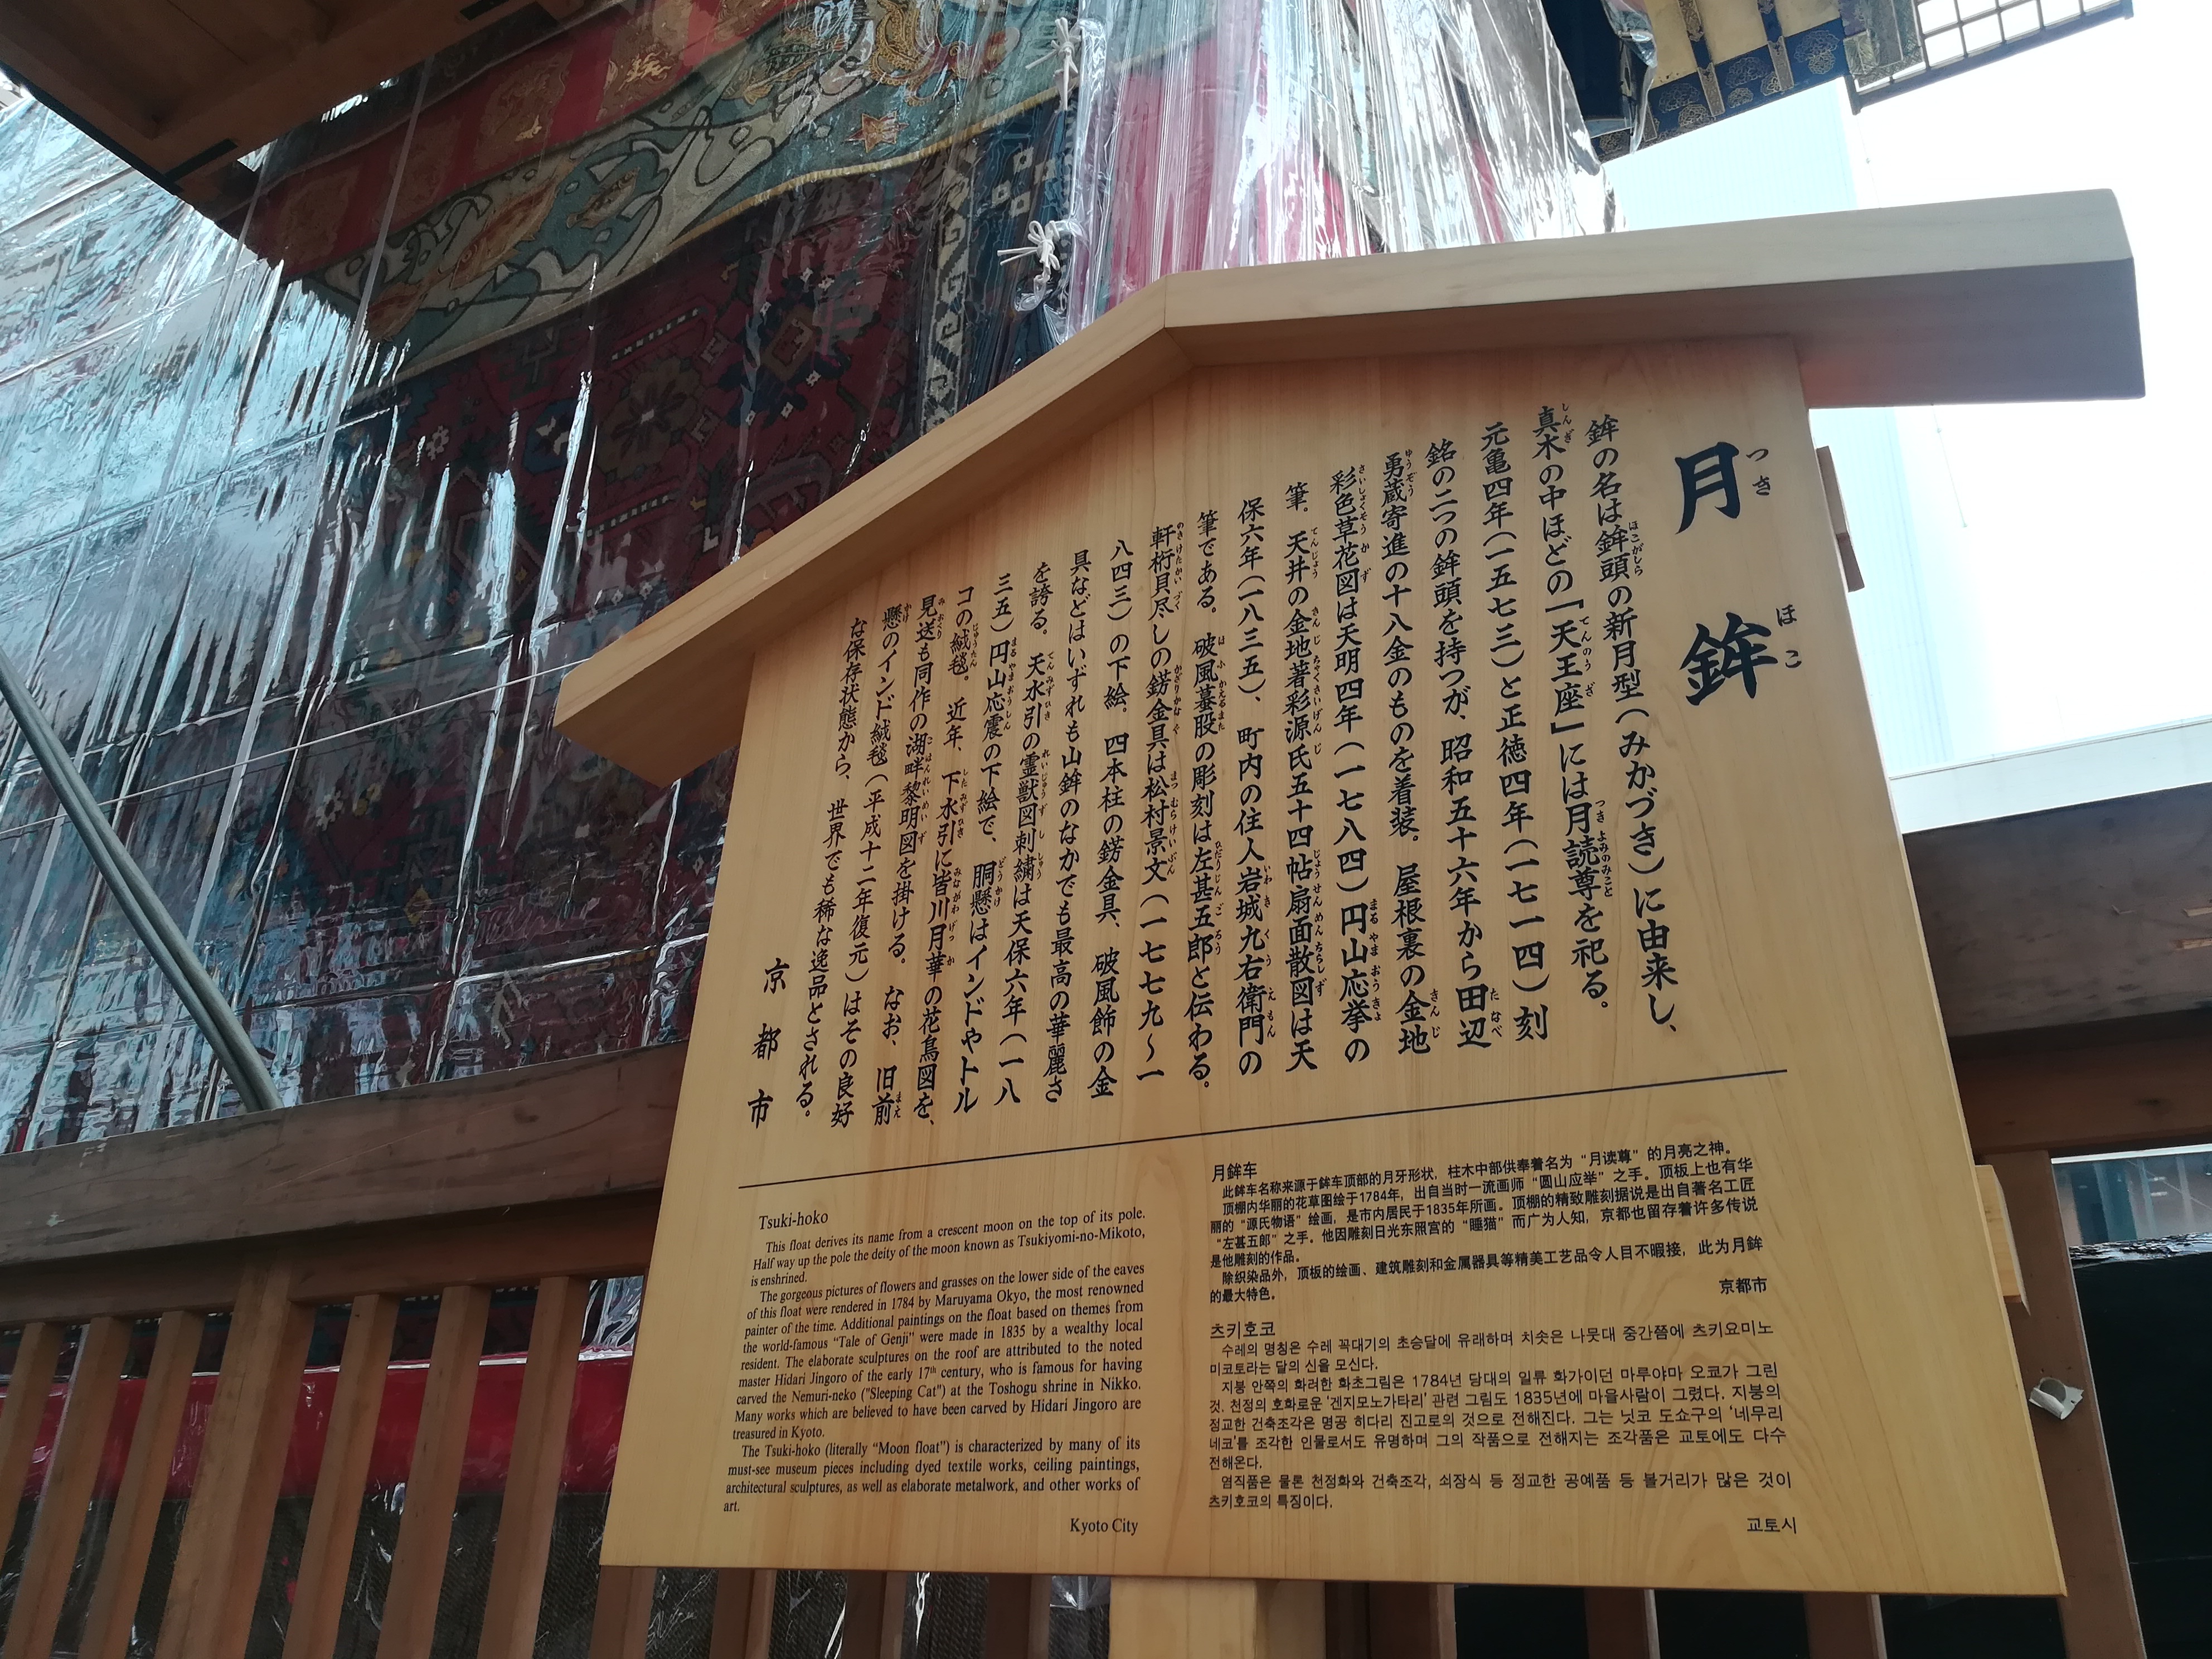 月鉾
つきほこ
鉾の名は鉾頭の新月型(みかづき)に由来し、
真木の中ほどの「天王座」には月読尊を祀る。
元亀四年(一五七三)と正徳四年(一七一四)刻
銘の二つの鉾頭を持つが、昭和五十六年から田辺
勇蔵寄進の十八金のものを着装。屋根裏の金地
彩色草花図は天明四年(一七八四)円山応挙の
筆。天井の金地著彩源氏五十四帖扇面散図は天
保六年(一八三五)、町内の住人岩城九右衛門の
筆である。破風蟇股の彫刻は左甚五郎と伝わる。
軒桁貝尽しの錺金具は松村景文(一七七九〜一
八四三)の下絵。四本柱の錺金具、破風飾の金
具などはいずれも山鉾のなかでも最高の華麗さ
を誇る。天水引の霊獣図刺繍は天保六年(一八
三五)円山応震の下絵で、胴懸はインドやトル
コの絨毯。近年、下水引に皆川月華の花鳥図を、
見送も同作の湖畔黎明図を掛ける。なお、旧前
懸のインド絨毯(平成十二年復元)はその良好
な保存状態から、世界でも稀な逸品とされる。
京都市
Tsuki-hoko
This float derives its name from a crescent moon on the top of its pole.
Half way up the pole the deity of the moon known as Tsukiyomi-no-Mikoto,
is enshrined.
The gorgeous pictures of flowers and grasses on the lower side of the eaves
of this float were rendered in 1784 by Maruyama Okyo, the most renowned
painter of the time. Additional paintings on the float based on themes from
the world-famous “Tale of Genji” were made in 1835 by a wealthy local
resident. The elaborate sculptures on the roof are attributed to the noted
master Hidari Jingoro of the early 17th century, who is famous for having
carved the Nemuri-neko ("Sleeping Cat") at the Toshogu shrine in Nikko.
Many works which are believed to have been carved by Hidari Jingoro are
treasured in Kyoto.
The Tsuki-hoko (literally “Moon float”) is characterized by many of its
must-see museum pieces including dyed textile works, ceiling paintings,
architectural sculptures, as well as elaborate metalwork, and other works of
art.
Kyoto City
月鉾车
此鉾车名称来源于鉾车顶部的月牙形状，柱木中部供奉着名为“月读尊”的月亮之神。
顶棚内华丽的花草图绘于1784年，出自当时一流画师“圆山应举”之手。顶板上也有华
丽的“源氏物语”绘画，是市内居民于1835年所画。顶棚的精致雕刻据说是出自著名工匠
“左甚五郎”之手。他因雕刻日光东照宫的“睡猫”而广为人知，京都也留存着许多传说
是他雕刻的作品。
除织染品外，顶板的绘画、建筑雕刻和金属器具等精美工艺品令人目不暇接，此为月鉾
的最大特色。
京都市
츠키호코
수레의 명칭은 수레 꼭대기의 초승달에 유래하며 치솟은 나뭇대 중간쯤에 츠키요미노
미코토라는 달의 신을 모신다.
지붕 안쪽의 화려한 화초그림은 1784년 당대의 일류 화가이던 마루야마 오쿄가 그린
것. 천정의 호화로운 '겐지모노가타리' 관련 그림도 1835년에 마을사람이 그렸다. 지붕의
정교한 건축조각은 명공 히다리 진고로의 것으로 전해진다. 그는 닛코 도쇼구의 '네무리
네코'를 조각한 인물로서도 유명하며 그의 작품으로 전해지는 조각품은 교토에도 다수
전해온다.
염직품은 물론 천정화와 건축조각, 쇠장식 등 정교한 공예품 등 볼거리가 많은 것이
츠키호코의 특징이다.
교토시